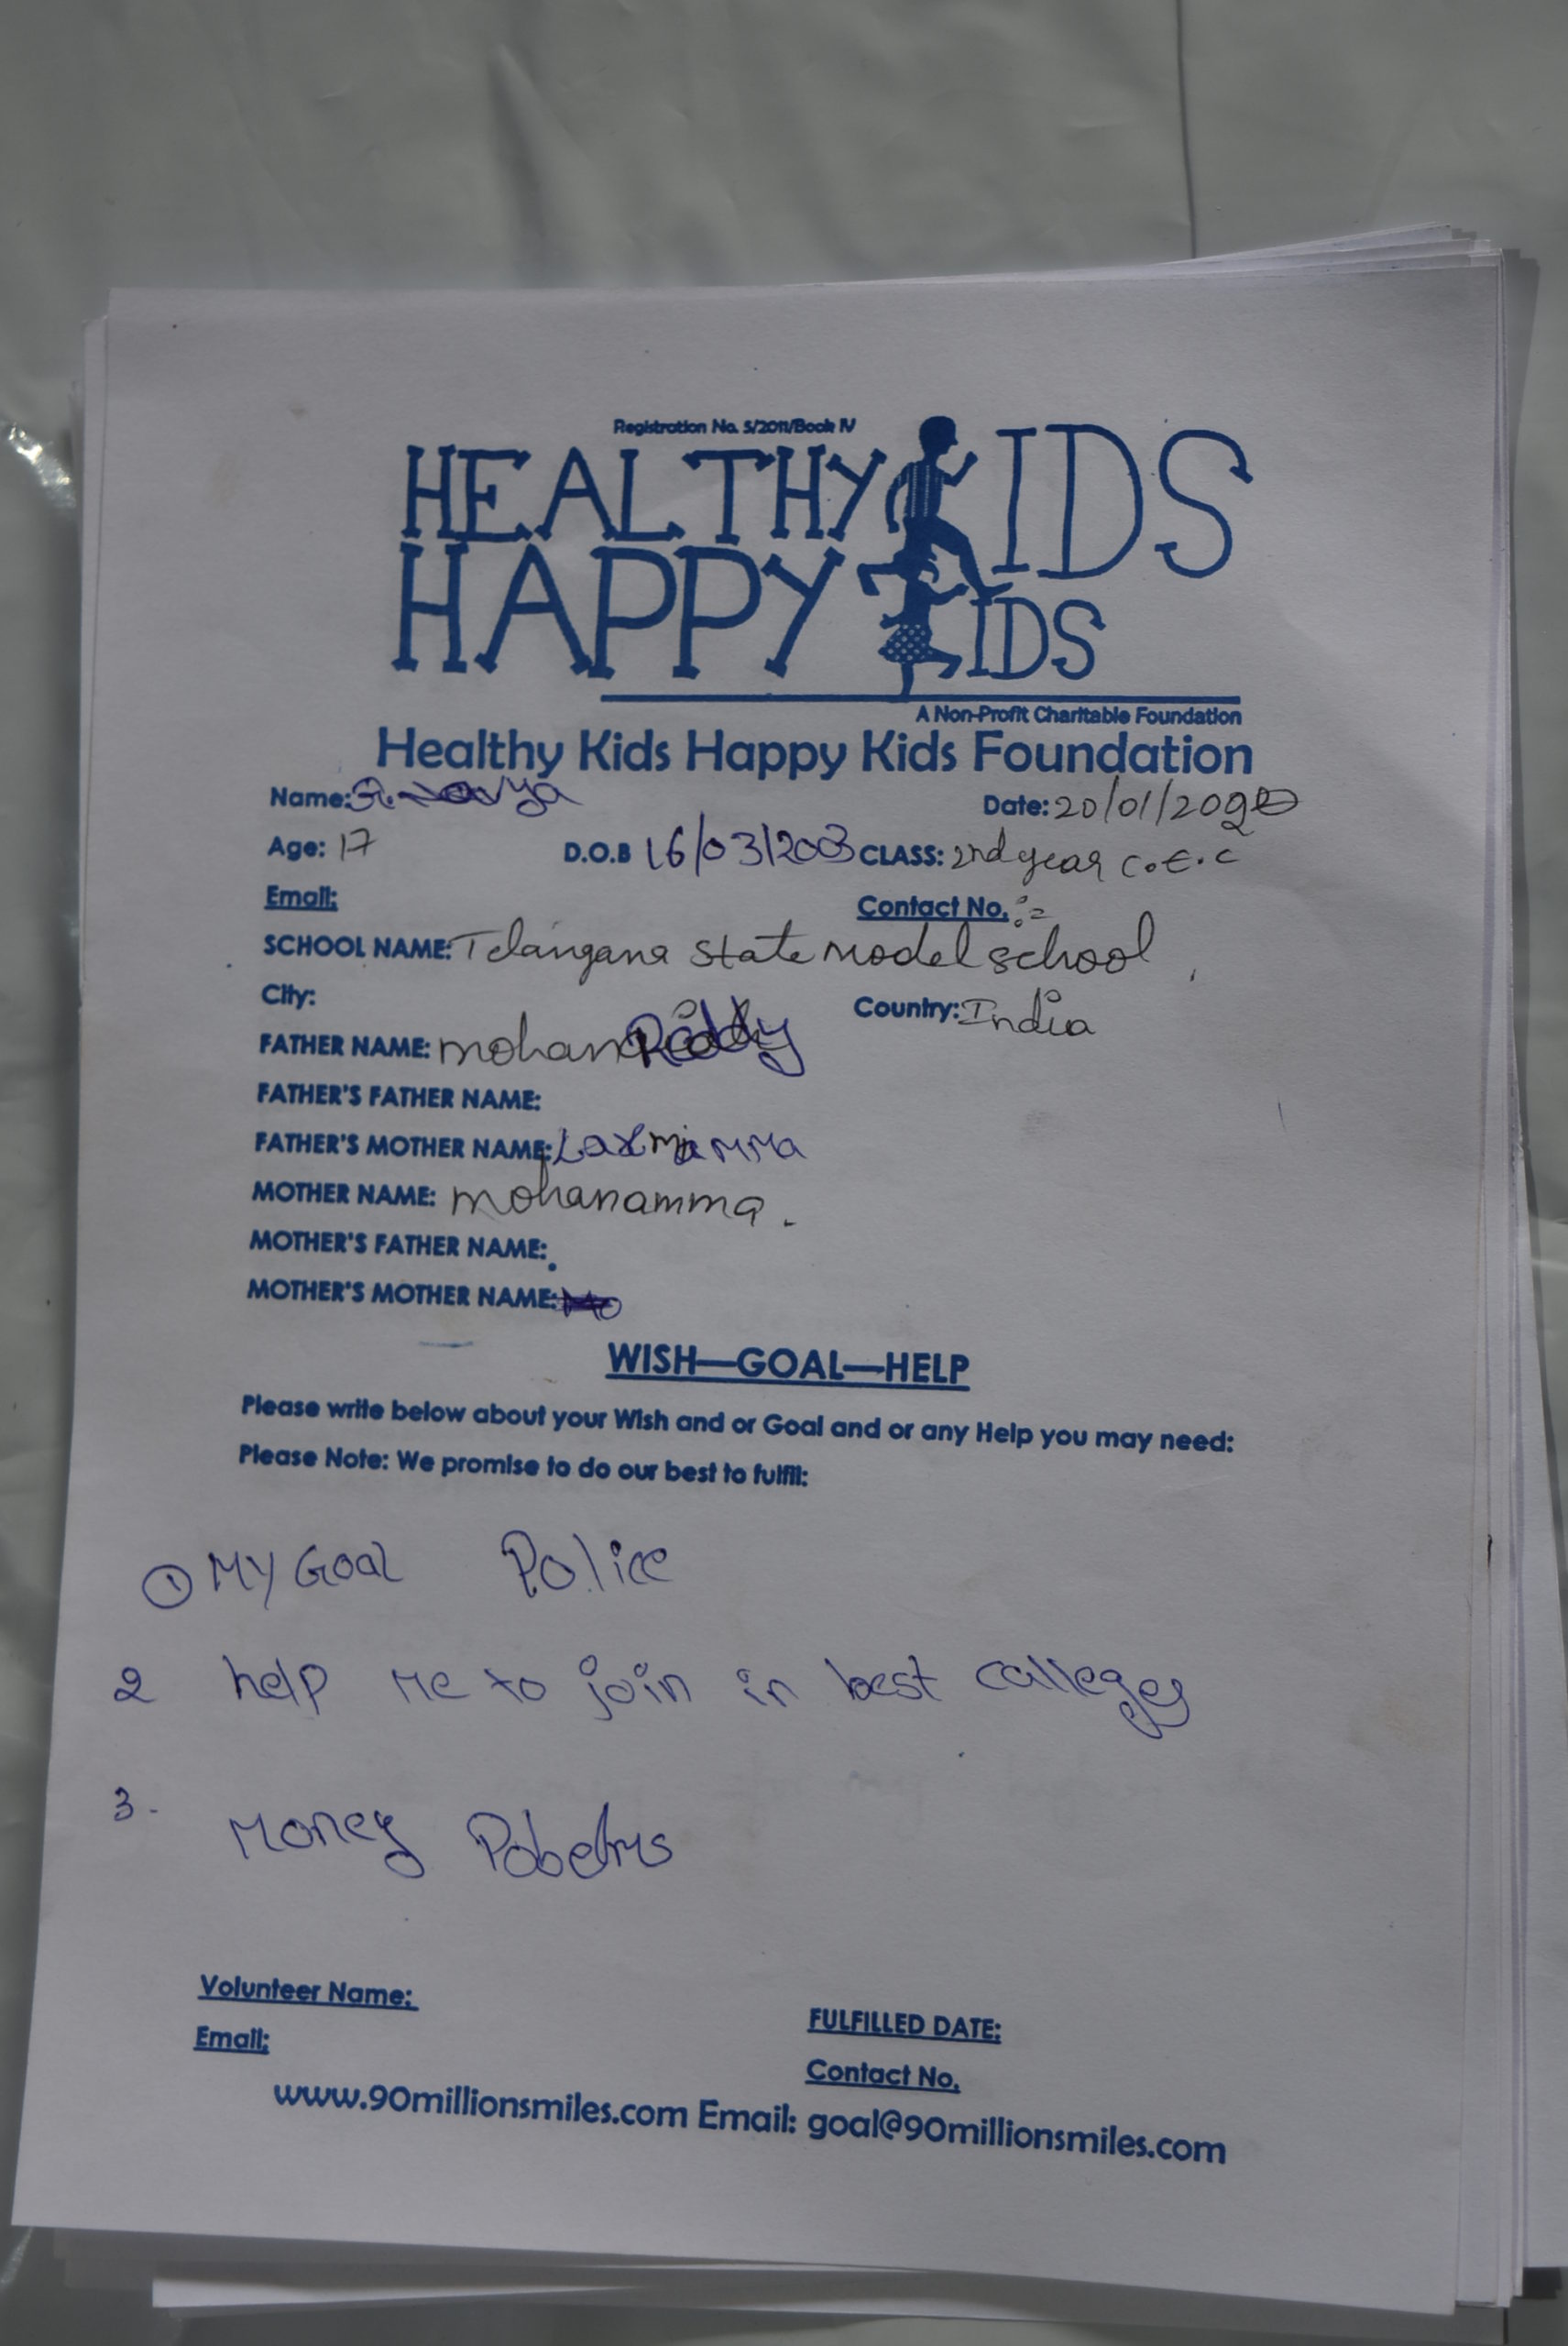 Registration No. 5/2011/Book IV
HEALTHY KIDS
HAPPY KIDS
A Non-Profit Charitable Foundation
Healthy Kids Happy Kids Foundation
Name: Date: 20/01/2020
Age: 17 D.O.B 16/03/2003 CLASS: 2nd year C.E.C
Email: Contact No. :-
SCHOOL NAME: Telangana state model school
City: Country: India
FATHER NAME: mohan Reddy
FATHER'S FATHER NAME:
FATHER'S MOTHER NAME: Laxmiamma
MOTHER NAME: mohanamma.
MOTHER'S FATHER NAME:
MOTHER'S MOTHER NAME:
WISH—GOAL—HELP
Please write below about your Wish and or Goal and or any Help you may need:
Please Note: We promise to do our best to fulfil:
① MY GOAL Police
2 help me to join in best calleges
3. Money
Volunteer Name: FULFILLED DATE:
Email: Contact No.
www.90millionsmiles.com Email: goal@90millionsmiles.com